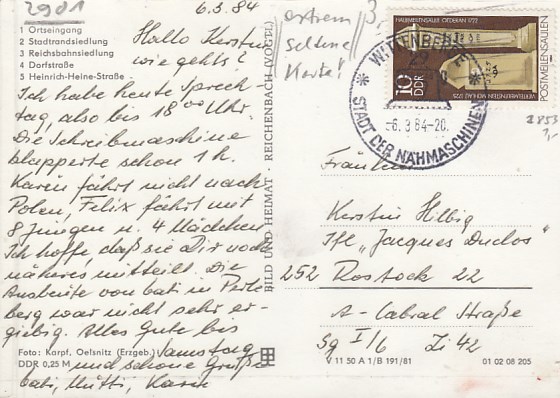 2901
6.3.84
1 Ortseingang
2 Stadtrandsiedlung
3 Reichsbahnsiedlung
4 Dorfstraße
5 Heinrich-Heine-Straße
Hallo Kerstin
wie gehts?
Ich habe heute Sprech-
tag, also bis 18⁰⁰ Uhr.
Die Schreibmaschine
klapperte schon 1 h.
Karin fährt nicht nach
Polen, Felix fährt mit
8 Jungen u. 4 Mädchen
Ich hoffe, daß sie Dir noch
näheres mitteilt. Die
Ausbeute von Vati in Perle
berg war nicht sehr er-
giebig. Alles Gute bis
Samstag
und schöne Grüße
Vati, Mutti, Karin
Foto: Karpf, Oelsnitz (Erzgeb.)
DDR 0,25 M
BILD UND HEIMAT · REICHENBACH (VOGTL)
extrem
seltene
Karte!
HALBMEILENSÄULE OEDERAN 1722
POSTMEILENSÄULEN
10
DDR
WITTENBERGE
29
-6.3.84-20
STADT DER NÄHMASCHINEN
2853
Fräulein
Kerstin Hilbig
Ifl „Jacques Duclos"
252 Rostock 22
A-Cabral Straße
Sg I/6 Zi 42
V 11 50 A 1/B 191/81
01 02 08 205